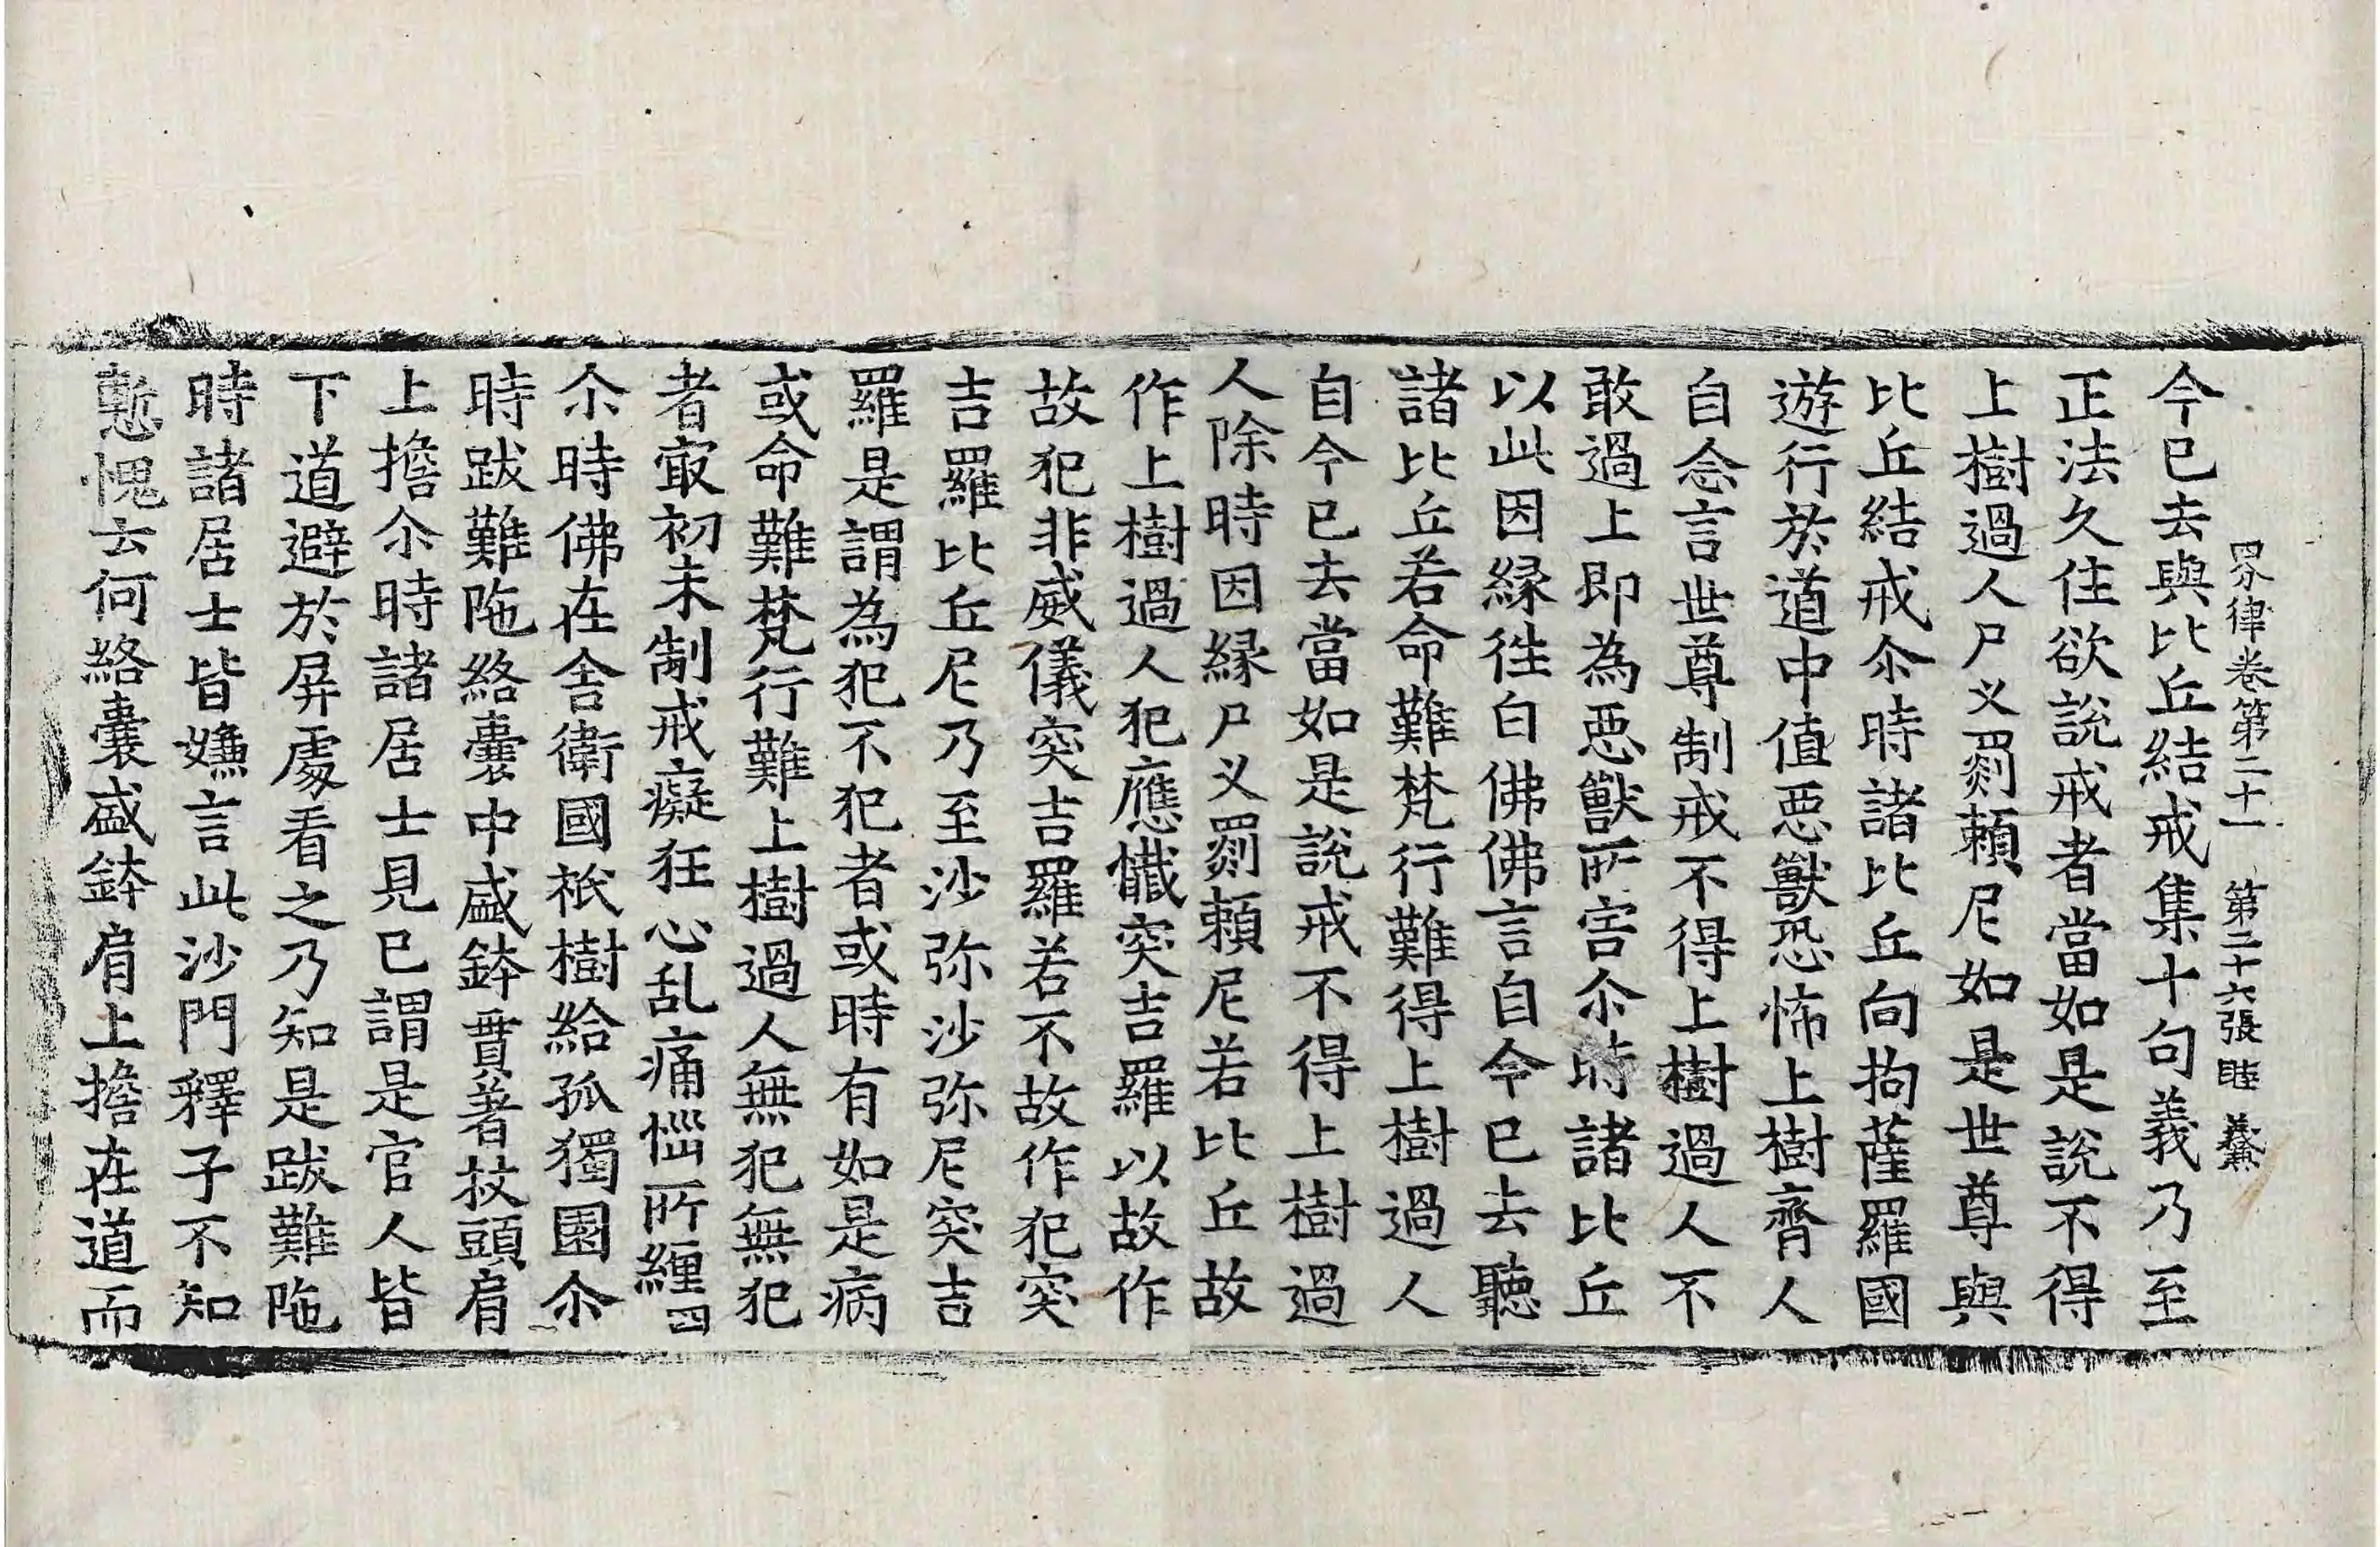 四分律卷第二十一 第二十六張 睦
今已去與比丘結戒集十句義乃至
正法久住欲說戒者當如是說不得
上樹過人尸叉罽頼尼如是世尊與
比丘結戒尒時諸比丘向拘薩羅國
遊行於道中值惡獸恐怖上樹齊人
自念言世尊制戒不得上樹過人不
敢過上即為惡獸所害尒時諸比丘
以此因縁往白佛佛言自今已去聽
諸比丘若命難梵行難得上樹過人
自今已去當如是說戒不得上樹過
人除時因縁尸叉罽頼尼若比丘故
作上樹過人犯應懺突吉羅以故作
故犯非威儀突吉羅若不故作犯突
吉羅比丘尼乃至沙弥沙弥尼突吉
羅是謂為犯不犯者或時有如是病
或命難梵行難上樹過人無犯無犯
者㝡初未制戒癡狂心乱痛惱所纏四
尒時佛在舍衛國祇樹給孤獨園尒
時跋難陁絡囊中盛鉢貫著杖頭肩
上擔尒時諸居士見已謂是官人皆
下道避於屏處看之乃知是跋難陁
時諸居士皆嫌言此沙門釋子不知
慙愧云何絡囊盛鉢肩上擔在道而